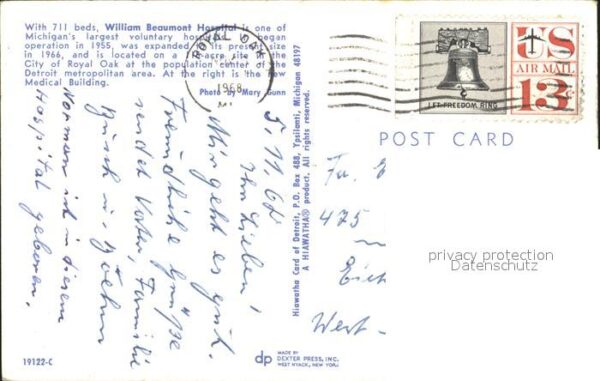 With 711 beds, William Beaumont Hospital is one of
Michigan's largest voluntary hospitals. It began
operation in 1955, was expanded to its present size
in 1966, and is located on a -acre site in the
City of Royal Oak at the population center of the
Detroit metropolitan area. At the right is the new
Medical Building.
Photo by Mary Gunn
ROYAL OAK
1968
5.11.68
Ihr Lieben!
Mir geht es gut.
Freundliche Grüße
sendet Vater, Familie
Busch u.
Norman ist in diesem
Hospital geboren.
19122-C
Hiawatha Card of Detroit, P.O. Box 488, Ypsilanti, Michigan 48197
A HIAWATHA® product. All rights reserved.
dp
MADE BY
DEXTER PRESS, INC.
WEST NYACK, NEW YORK
LET FREEDOM RING
US
AIR MAIL
13c
POST CARD
Fa. E
475
Eich
West-
privacy protection
Datenschutz